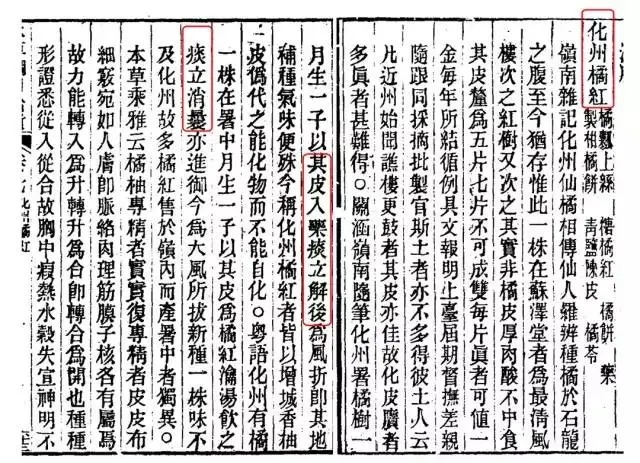 化州橘紅 橘瓤上絲 橘紅 橘餅 藥
製柑橘餅 青鹽陳皮 橘苓
嶺南雜記化州仙橘相傳仙人羅辨種橘於石龍
之腹至今猶存惟此一株在蘇澤堂者為最淸風
樓次之紅樹又次之其實非橘皮厚肉酸不中食
其皮釐為五片七片不可成雙每片眞者可值一
金每年所結循例具文報明上臺屆期督撫差親
隨跟同採摘批製官斯土者亦不多得彼土人云
凡近州始聞譙樓更鼓者其皮亦佳故化皮贋者
多眞者甚難得○關涵嶺南隨筆化州署橘樹一
月生一子以其皮入藥痰立解後為風折即其地
補種氣味便殊今稱化州橘紅者皆以增城香柚
皮僞代之能化物而不能自化○粤語化州有橘
一株在署中月生一子以其皮為橘紅瀹湯飲之
痰立消曩亦進御今為大風所拔新種一株味不
及化州故多橘紅售於嶺內而產署中者獨異○
本草乘雅云橘柚專精者實實復專精者皮皮布
細竅宛如人膚即脈絡肉理筋膜子核各有屬焉
故力能轉入為升轉升為合即轉合為開也種種
形證悉從入從合故胸中瘕熱水穀失宣神明不